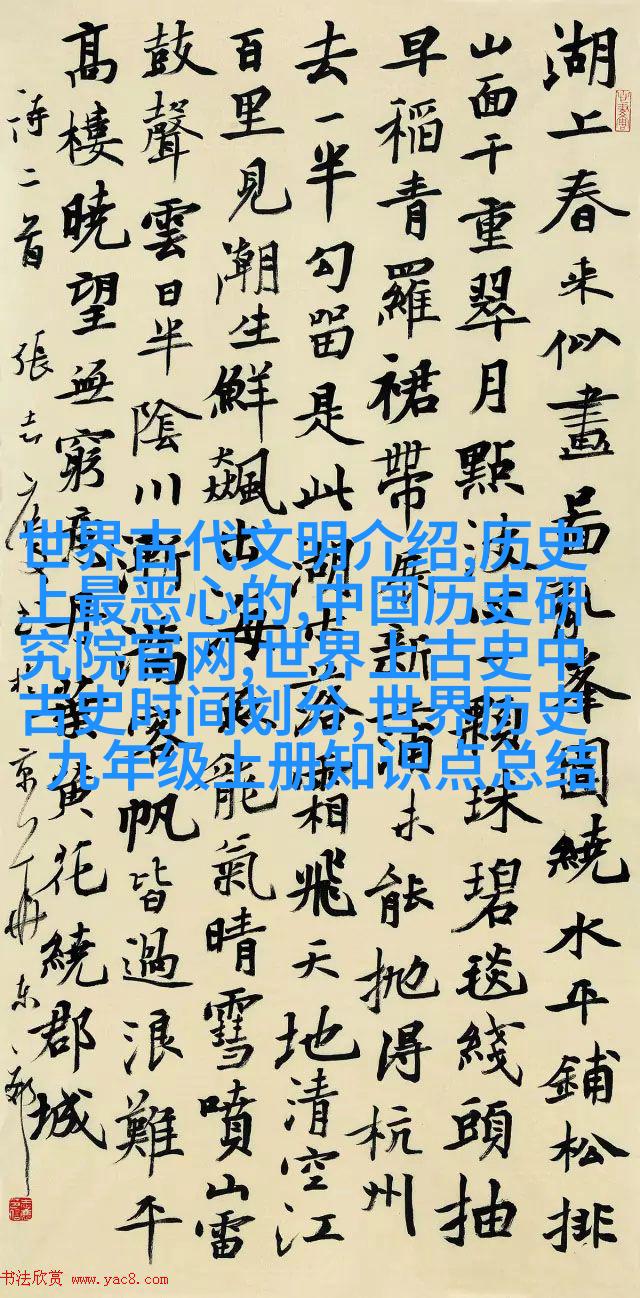 湖上春来似畫啚亂峯圍繞水平鋪松排
山面千重翠月點波心一顆珠碧毯綫頭抽
早稻青羅裙帶展新蒲未能抛得杭州
去一半勾留是此湖木落霜飛天地清空江
百里見潮生鮮飚出海魚龍氣晴雪噴山雷
鼓聲雲日半陰川漸滿客帆皆過浪難平
高樓曉望無窮意丹葉黄花繞郡城
詩二首 張志 京
世界古代文明介绍,历史
上最恶心的,中国历史研
究院官网,世界上古史中
古史时间划分,世界历史
九年级上册知识点总结
书法欣赏 www.yac8.com